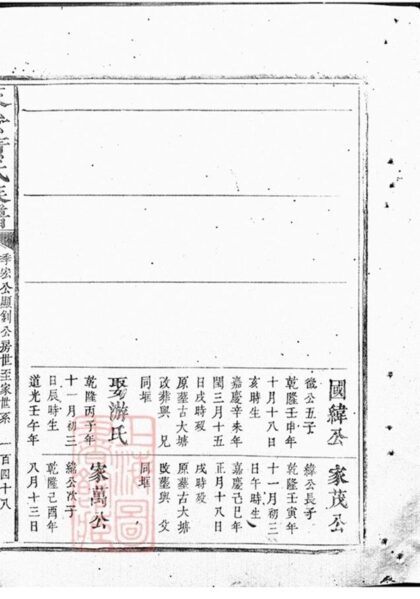 國緯公
公五子
乾隆壬申年
十月十八日
亥時生
嘉慶辛未年
閏三月十五
日戌時殁
原塟古大塘
改葬與兄
同堀
娶游氏
乾隆丙子年
十一月初三
日辰時生
道光壬午年
家茂公
緯公長子
乾隆壬寅年
十一月初三
日午時生
嘉慶己巳年
正月十八日
戌時殁
原塟古大塘
改塟與父
同堀
家萬公
緯公次子
乾隆己酉年
八月十三日
氏族譜
公顯釗公房世至家世系
一百四十八